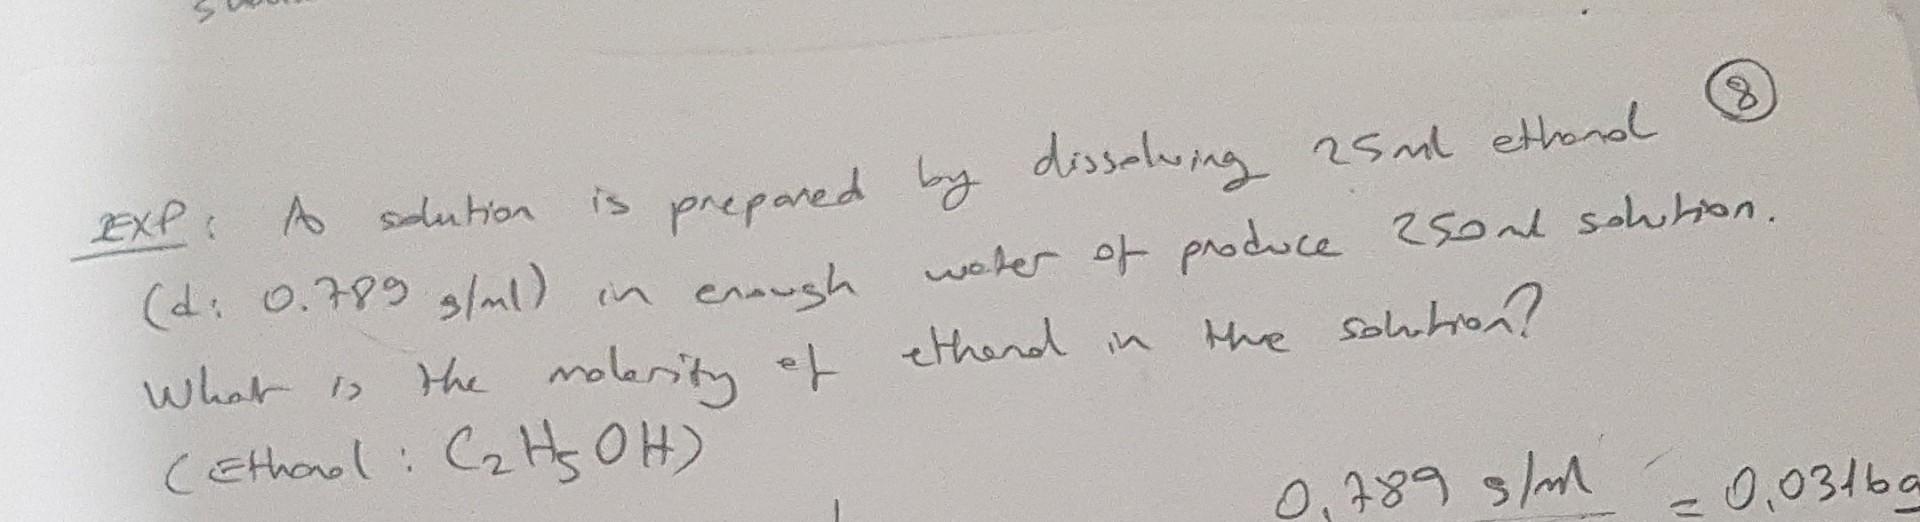 8
EXP: A solution is prepared by dissolving 25ml ethanol
(d: 0.789 g/ml) in enough water of produce 250ml solution.
What is the molarity of ethanol in the solution?
(Ethanol: C₂H₅OH)
0,789 g/ml = 0,0316g